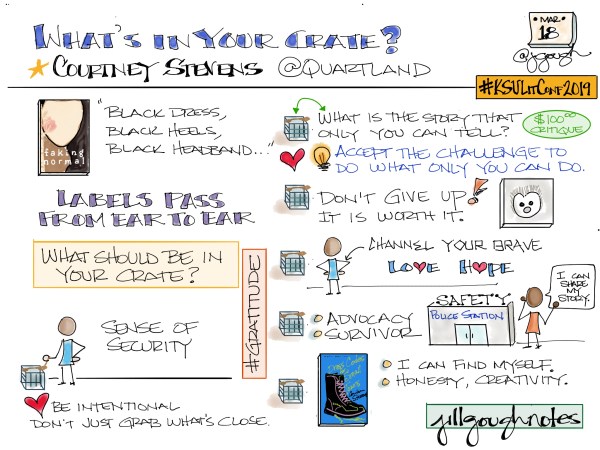 WHAT'S IN YOUR CRATE?
COURTNEY STEVENS @QUARTLAND
MAR
18
@jgough
#KSULitConf2019
faking
normal
"BLACK DRESS,
BLACK HEELS,
BLACK HEADBAND..."
LABELS PASS
FROM EAR TO EAR
WHAT SHOULD BE IN
YOUR CRATE?
SENSE OF
SECURITY
BE INTENTIONAL
DON'T JUST GRAB WHAT'S CLOSE.
#GRATITUDE
WHAT IS THE STORY THAT
ONLY YOU CAN TELL?
$100.00
CRITIQUE
ACCEPT THE CHALLENGE TO
DO WHAT ONLY YOU CAN DO.
DON'T GIVE UP!
IT IS WORTH IT.
CHANNEL YOUR BRAVE
LOVE HOPE
ADVOCACY
SURVIVOR
SAFETY
POLICE STATION
I CAN
SHARE
MY
STORY.
I CAN FIND MYSELF.
HONESTY, CREATIVITY.
jillgoughnotes